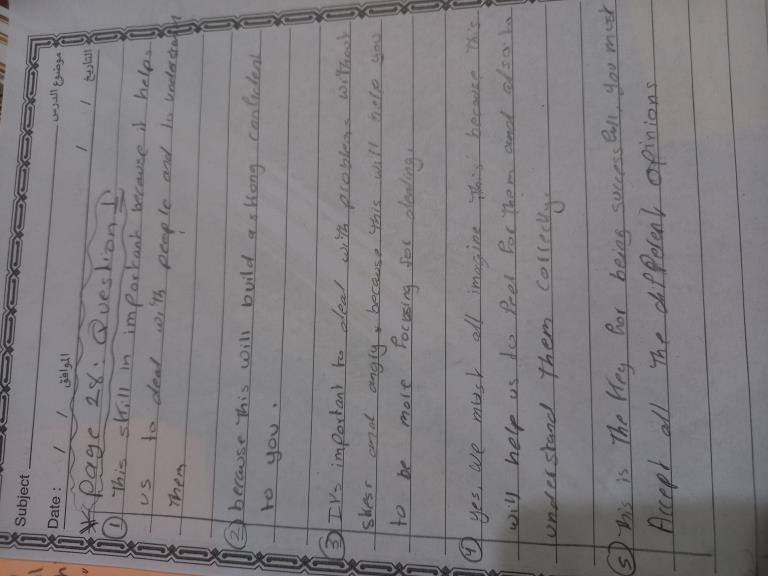 Subject موضوع الدرس
Date : / / الموافق / / التاريخ
* Page 28: Question 1
① This skill in important because it helps
us to deal with people and to understand
them
② because this will build a strong confident
to you.
③ It's important to deal with problems without
stress and angly, because this will help you
to be more focusing for dealing.
④ yes, we must all imagine this because this
will help us to feel for them and also to
understand them correctly.
⑤ This is the key for being successful, you must
Accept all the different opinions